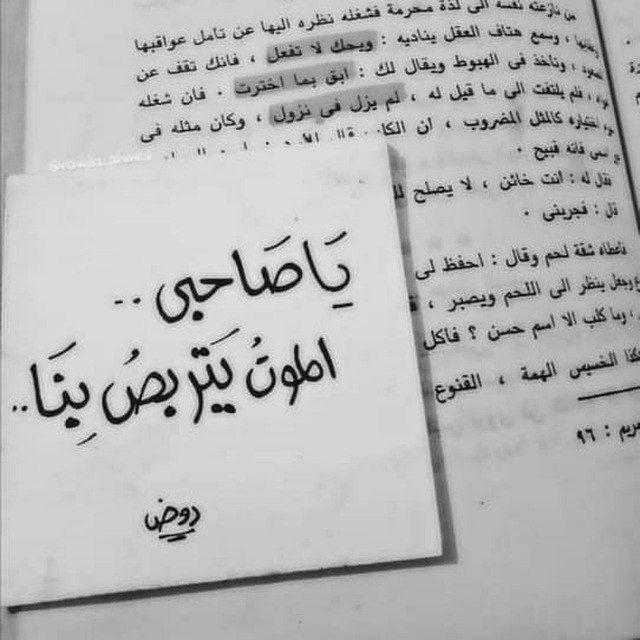 من نازعته نفسه الى لذة محرمة فشغله نظره اليها عن تأمل عواقبها
، وسمع هتاف العقل يناديه : ويحك لا تفعل ، فانك تقف عن
، وتأخذ فى الهبوط ويقال لك : ابق بما اخترت . فان شغله
، فلم يلتفت الى ما قيل له ، لم يزل فى نزول ، وكان مثله فى
اختياره كالمثل المضروب ، ان الكلب قال
فانه قبيح .
فقال له : انت خائن ، لا يصلح
قال : فجربنى .
فاعطاه شقة لحم وقال : احفظ لى
وجعل ينظر الى اللحم ويصبر ،
، وما كلب الا اسم حسن ؟ فأكل
الخسيس الهمة ، القنوع
مريم : ٩٦
يَا صَاحبي ..
الموتُ يَتربصُ بِنَا ..
دوض